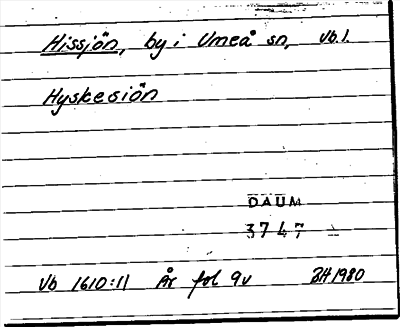 Hissjön, by i Umeå sn, Vb. l.
Hyskesiön
DAUM
3747
Vb 1610:11 År fol 9v BH 1980